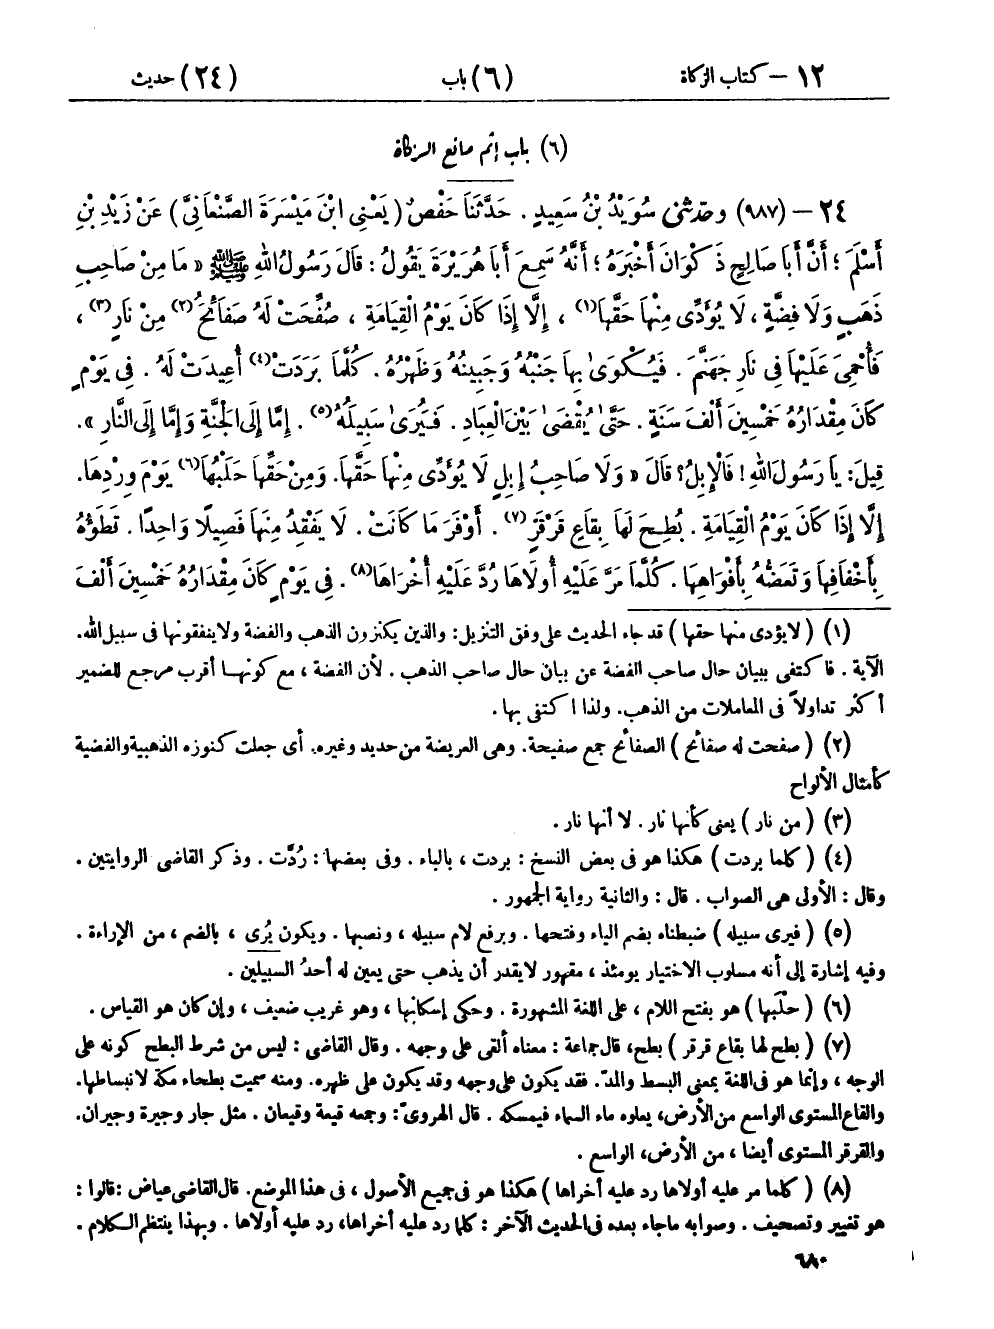 ١٢ – كتاب الزكاة (٦) باب (٢٤) حديث
(٦) باب إثم مانع الزكاة
٢٤ – (٩٨٧) وحَدَّثَنِي سُوَيْدُ بْنُ سَعِيدٍ . حَدَّثَنَا حَفْصٌ (يَعْنِي ابْنَ مَيْسَرَةَ الصَّنْعَانِيَّ) عَنْ زَيْدِ بْنِ
أَسْلَمَ ؛ أَنَّ أَبَا صَالِحٍ ذَكْوَانَ أَخْبَرَهُ ؛ أَنَّهُ سَمِعَ أَبَا هُرَيْرَةَ يَقُولُ : قَالَ رَسُولُ اللهِ ﷺ « مَا مِنْ صَاحِبِ
ذَهَبٍ وَلَا فِضَّةٍ ، لَا يُؤَدِّى مِنْهَا حَقَّهَا(١) ، إِلَّا إِذَا كَانَ يَوْمُ الْقِيَامَةِ ، صُفِّحَتْ لَهُ صَفَائِحُ(٢) مِنْ نَارٍ(٣) ،
فَأُحْمِىَ عَلَيْهَا فِى نَارِ جَهَنَّمَ . فَيُكْوَىٰ بِهَا جَنْبُهُ وَجَبِينُهُ وَظَهْرُهُ . كُلَّمَا بَرَدَتْ(٤) أُعِيدَتْ لَهُ . فِى يَوْمٍ
كَانَ مِقْدَارُهُ خَمْسِينَ أَلْفَ سَنَةٍ . حَتَّىٰ يُقْضَىٰ بَيْنَ الْعِبَادِ . فَيُرَىٰ سَبِيلُهُ(٥) . إِمَّا إِلَى الْجَنَّةِ وَإِمَّا إِلَى النَّارِ ».
قِيلَ : يَا رَسُولَ اللهِ ! فَالْإِبِلُ؟ قَالَ « وَلَا صَاحِبُ إِبِلٍ لَا يُؤَدِّى مِنْهَا حَقَّهَا. وَمِنْ حَقِّهَا حَلَبُهَا(٦) يَوْمَ وِرْدِهَا.
إِلَّا إِذَا كَانَ يَوْمُ الْقِيَامَةِ . بُطِحَ لَهَا بِقَاعٍ قَرْقَرٍ(٧) . أَوْفَرَ مَا كَانَتْ . لَا يَفْقِدُ مِنْهَا فَصِيلًا وَاحِدًا . تَطَؤُهُ
بِأَخْفَافِهَا وَتَعَضُّهُ بِأَفْوَاهِهَا . كُلَّمَا مَرَّ عَلَيْهِ أُولَاهَا رُدَّ عَلَيْهِ أُخْرَاهَا(٨) . فِى يَوْمٍ كَانَ مِقْدَارُهُ خَمْسِينَ أَلْفَ
(١) ( لا يؤدى منها حقها ) قد جاء الحديث على وفق التنزيل : والذين يكنزون الذهب والفضة ولا ينفقونها فى سبيل الله.
الآية . فاكتفى ببيان حال صاحب الفضة عن بيان حال صاحب الذهب . لأن الفضة ، مع كونها أقرب مرجع للضمير
أكثر تداولاً فى المعاملات من الذهب. ولذا اكتفى بها .
(٢) ( صفحت له صفائح ) الصفائح جمع صفيحة. وهى العريضة من حديد وغيره. أى جعلت كنوزه الذهبية والفضية
كأمثال الألواح
(٣) ( من نار ) يعنى كأنها نار . لا أنها نار .
(٤) ( كلما بردت ) هكذا هو فى بعض النسخ : بردت ، بالباء . وفى بعضها : رُدَّت . وذكر القاضى الروايتين .
وقال : الأولى هى الصواب . قال : والثانية رواية الجمهور .
(٥) ( فيرى سبيله ) ضبطناه بضم الياء وفتحها . وبرفع لام سبيله ، ونصبها . ويكون يُرى ، بالضم ، من الإراءة .
وفيه إشارة إلى أنه مسلوب الاختيار يومئذ ، مقهور لا يقدر أن يذهب حتى يعين له أحدُ السبيلين .
(٦) ( حلَبها ) هو بفتح اللام ، على اللغة المشهورة . وحكى إسكانها ، وهو غريب ضعيف ، وإن كان هو القياس .
(٧) ( بطح لها بقاع قرقر ) بطح، قال جماعة : معناه ألقى على وجهه . وقال القاضى : ليس من شرط البطح كونه على
الوجه ، وإنما هو فى اللغة بمعنى البسط والمدّ. فقد يكون على وجهه وقد يكون على ظهره. ومنه سميت بطحاء مكة لانبساطها.
والقاع المستوى الواسع من الأرض، يعلوه ماء السماء فيمسكه . قال الهروىّ : وجمعه قيعة وقيعان . مثل جار وجيرة وجيران.
والقرقر المستوى أيضا ، من الأرض، الواسع .
(٨) ( كلما مر عليه أولاها رد عليه أخراها ) هكذا هو فى جميع الأصول ، فى هذا الموضع. قال القاضى عياض : قالوا :
هو تغيير وتصحيف . وصوابه ماجاء بعده فى الحديث الآخر : كلما رد عليه أخراها، رد عليه أولاها . وبهذا ينتظم الكلام .
٦٨٠